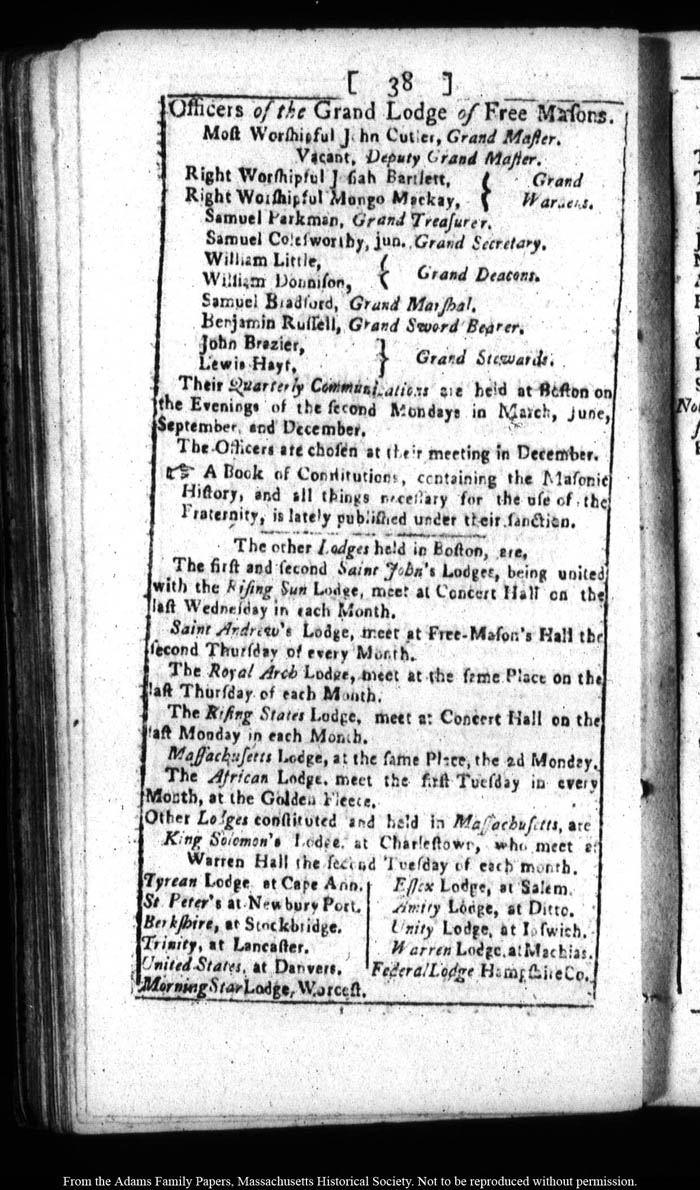 [ 38 ]
Officers of the Grand Lodge of Free Maſons.
Moſt Worſhipful J hn Cutler, Grand Maſter.
Vacant, Deputy Grand Maſter.
Right Worſhipful J ſiah Bartlett, { Grand
Right Worſhipful Mongo Mackay, Wardens.
Samuel Parkman, Grand Treaſurer.
Samuel Coleſworthy, jun. Grand Secretary.
William Little, { Grand Deacons.
William Donniſon,
Samuel Bradford, Grand Marſhal.
Benjamin Ruſſell, Grand Sword Bearer.
John Brazier, } Grand Stewards.
Lewis Hayt,
Their Quarterly Communications are held at Boſton on
the Evenings of the ſecond Mondays in March, June,
September, and December.
The Officers are choſen at their meeting in December.
☞ A Book of Conſtitutions, containing the Maſonic
Hiſtory, and all things neceſſary for the uſe of the
Fraternity, is lately publiſhed under their ſanction.
The other Lodges held in Boſton, are,
The firſt and ſecond Saint John's Lodges, being united
with the Riſing Sun Lodge, meet at Concert Hall on the
laſt Wedneſday in each Month.
Saint Andrew's Lodge, meet at Free-Maſon's Hall the
ſecond Thurſday of every Month.
The Royal Arch Lodge, meet at the ſame Place on the
laſt Thurſday of each Month.
The Riſing States Lodge, meet at Concert Hall on the
laſt Monday in each Month.
Maſſachuſetts Lodge, at the ſame Place, the 2d Monday.
The African Lodge, meet the firſt Tueſday in every
Month, at the Golden Fleece.
Other Lodges conſtituted and held in Maſſachuſetts, are
King Solomon's Lodge, at Charleſtown, who meet at
Warren Hall the ſecond Tueſday of each month.
Tyrean Lodge at Cape Ann. Eſſex Lodge, at Salem.
St. Peter's at Newbury Port. Amity Lodge, at Ditto.
Berkſhire, at Stockbridge. Unity Lodge, at Ipſwich.
Trinity, at Lancaſter. Warren Lodge, at Machias.
United States, at Danvers. Federal Lodge Hampſhire Co.
Morning Star Lodge, Worceſt.
From the Adams Family Papers, Massachusetts Historical Society. Not to be reproduced without permission.